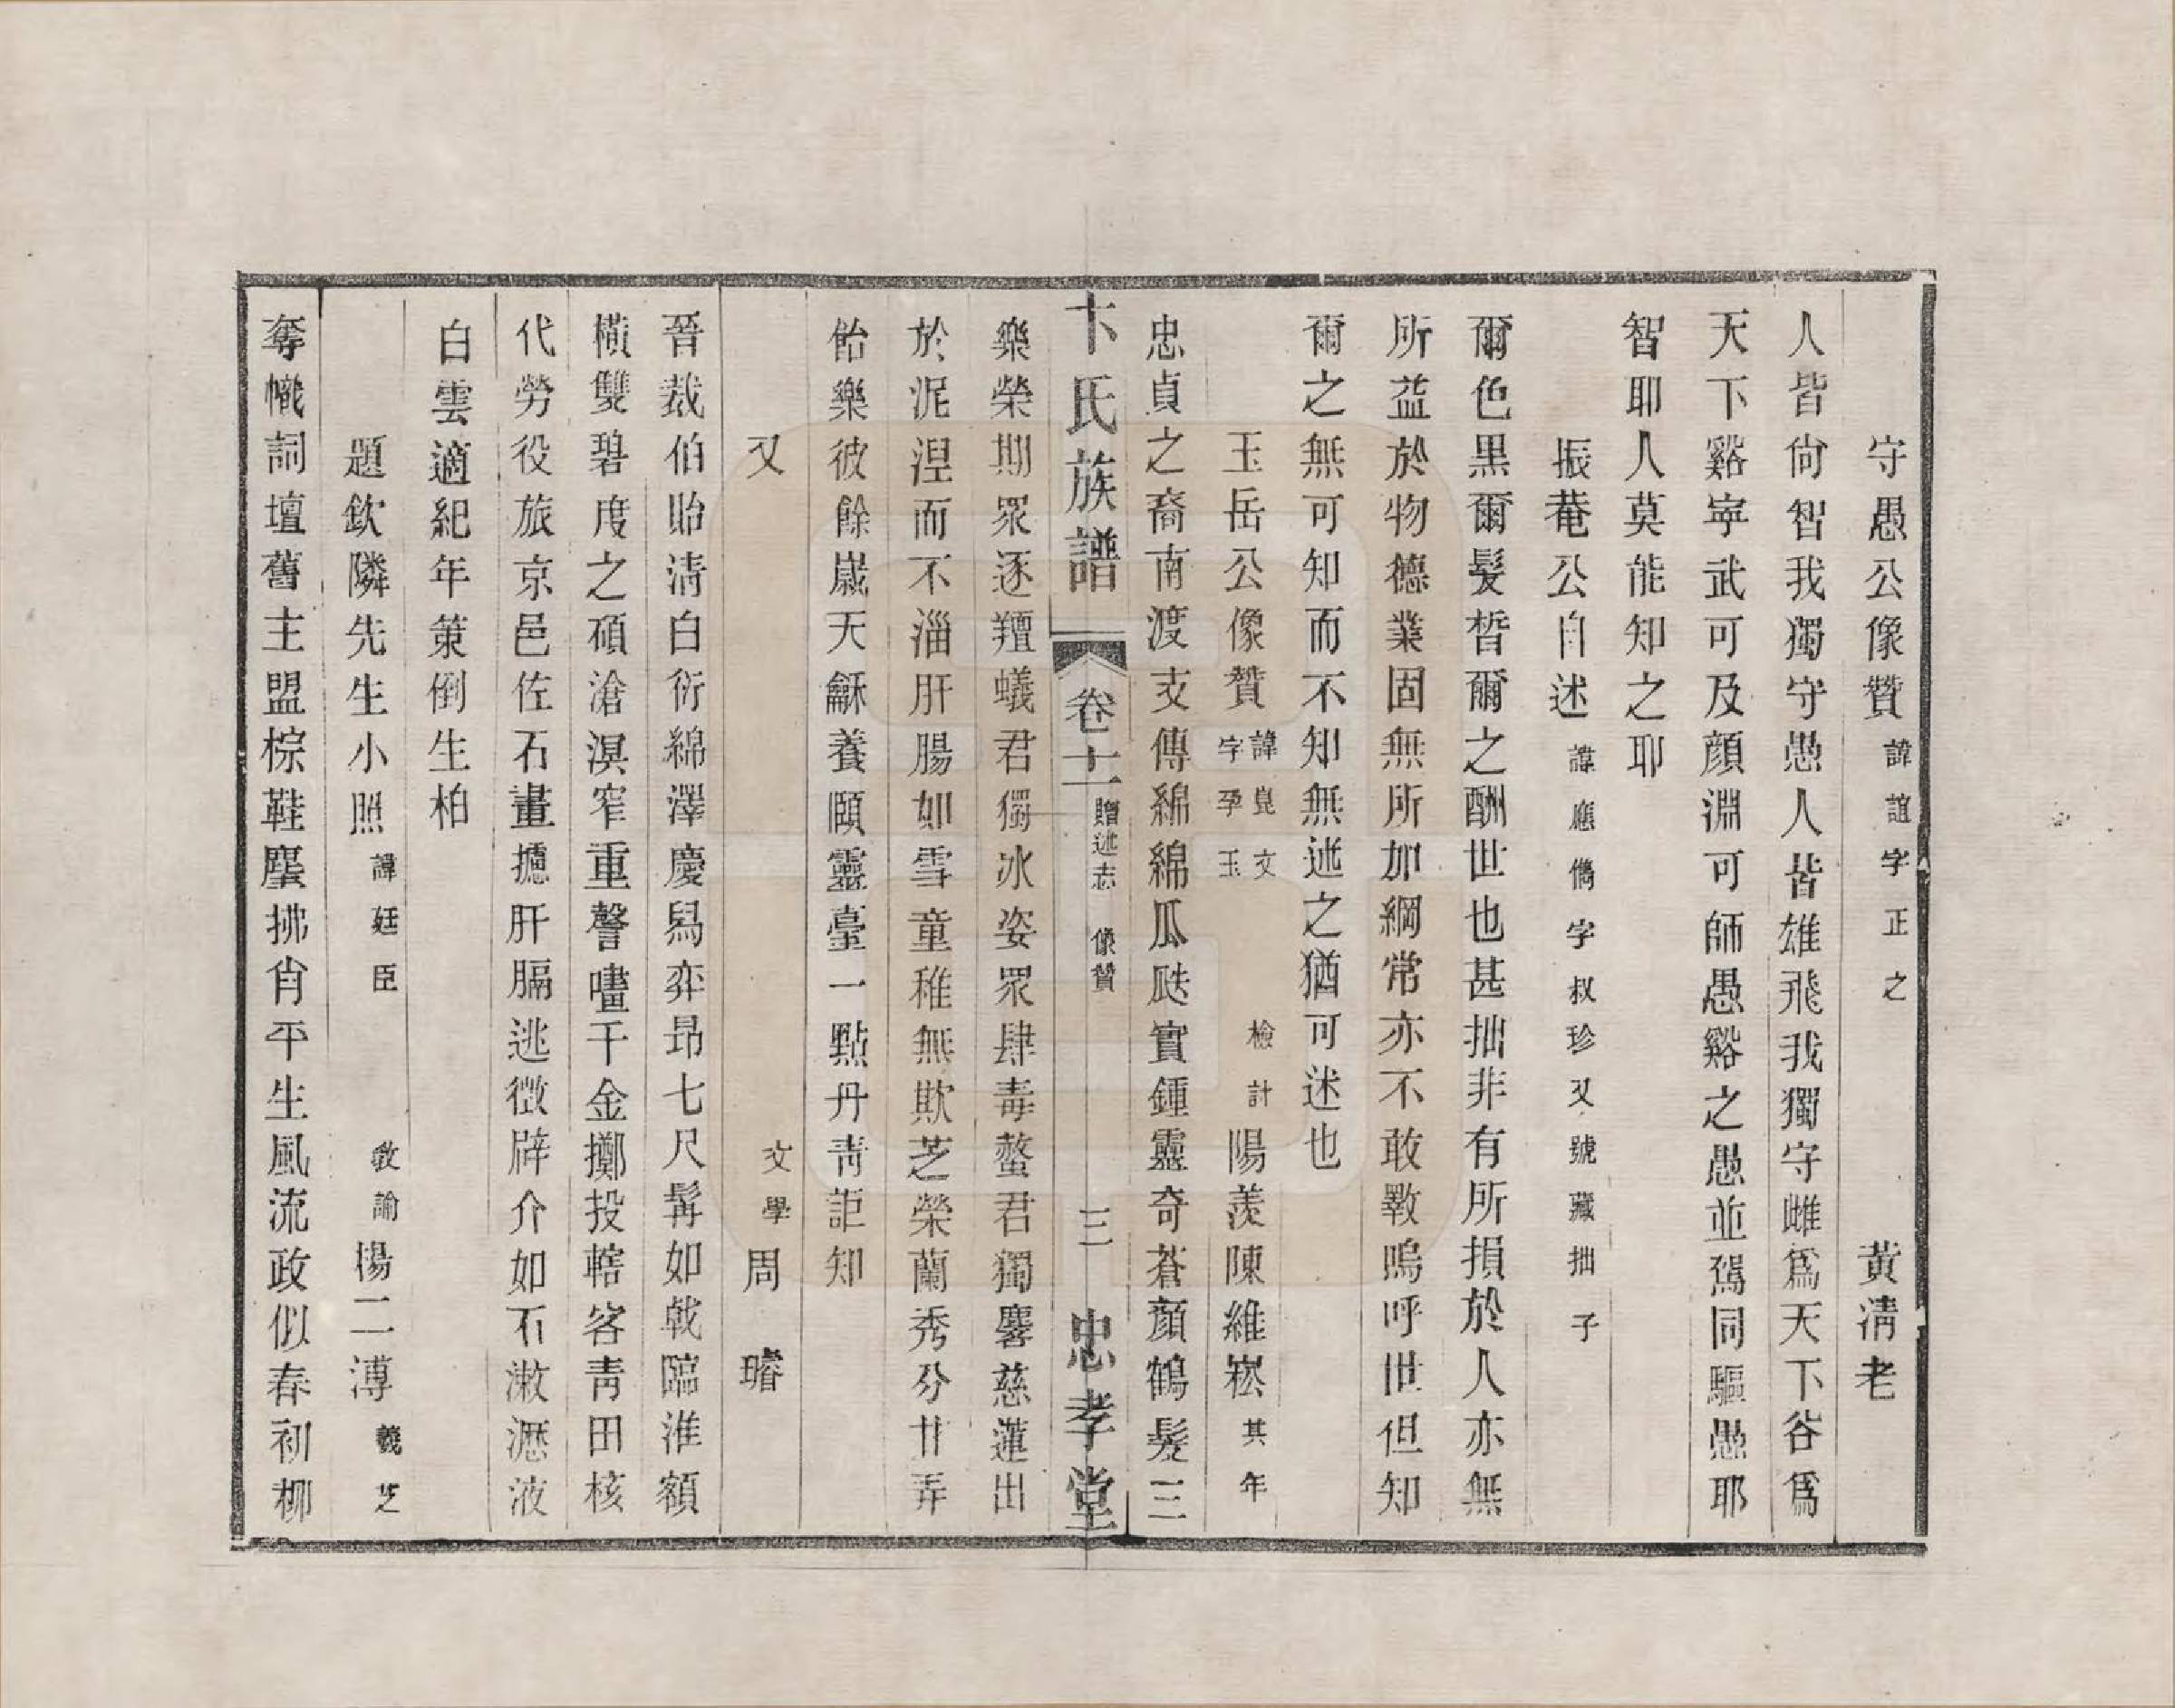 守愚公像贊 諱誼字正之 黃淸老
人皆尙智我獨守愚人皆雄飛我獨守雌爲天下谷爲
天下谿寧武可及顏淵可師愚谿之愚並駕同驅愚耶
智耶人莫能知之耶
振菴公自述 諱應儁字叔珍又號藏拙子
爾色黑爾髮皙爾之酬世也甚拙非有所損於人亦無
所益於物德業固無所加綱常亦不敢斁嗚呼世但知
爾之無可知而不知無述之猶可述也
玉岳公像贊 諱崑文字孕玉 檢計陽羨陳維崧其年
忠貞之裔南渡支傳綿綿瓜瓞實鍾靈奇蒼顏鶴髮三
卞氏族譜 卷十一 贈述志 像贊 三 忠孝堂
樂榮期眾逐羶蟻君獨冰姿眾肆毒螫君獨麐慈蓮出
於泥涅而不淄肝腸如雪童稚無欺芝榮蘭秀分甘弄
飴樂彼餘歲天龢養頤靈臺一點丹靑詎知
又 文學周㻸
晉裁伯貽淸白衍綿澤慶舄奕昻七尺髯如戟臨淮額
橫雙碧度之碩滄溟窄重謦嚍千金擲投轄客靑田核
代勞役旅京邑佐石畫攄肝膈逃徵辟介如石漱瀝液
白雲適紀年策倒生柏
題欽隣先生小照 諱廷臣 敎諭楊二溥羲芝
奪幟詞壇舊主盟棕鞋麈拂肖平生風流政似春初柳